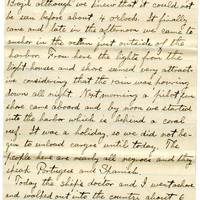 Brazil although we knew that it could not
be seen before about 4 o'clock. It finally
came and late in the afternoon we came to
anchor in the ocean just outside of the
harbor. From here the lights from the
light houses and shore seemed very attract-
ive considering that the rain was pouring
down all night. Next morning a pilot from
shore came aboard and by noon we started
into the harbor which is behind a coral
reef. It was a holiday, so we did not be-
gin to unload cargo until today. The
people here are nearly all negroes and they
speak Portuges and Spanish.
Today the ship's doctor and I went ashore
and walked out into the country about 6